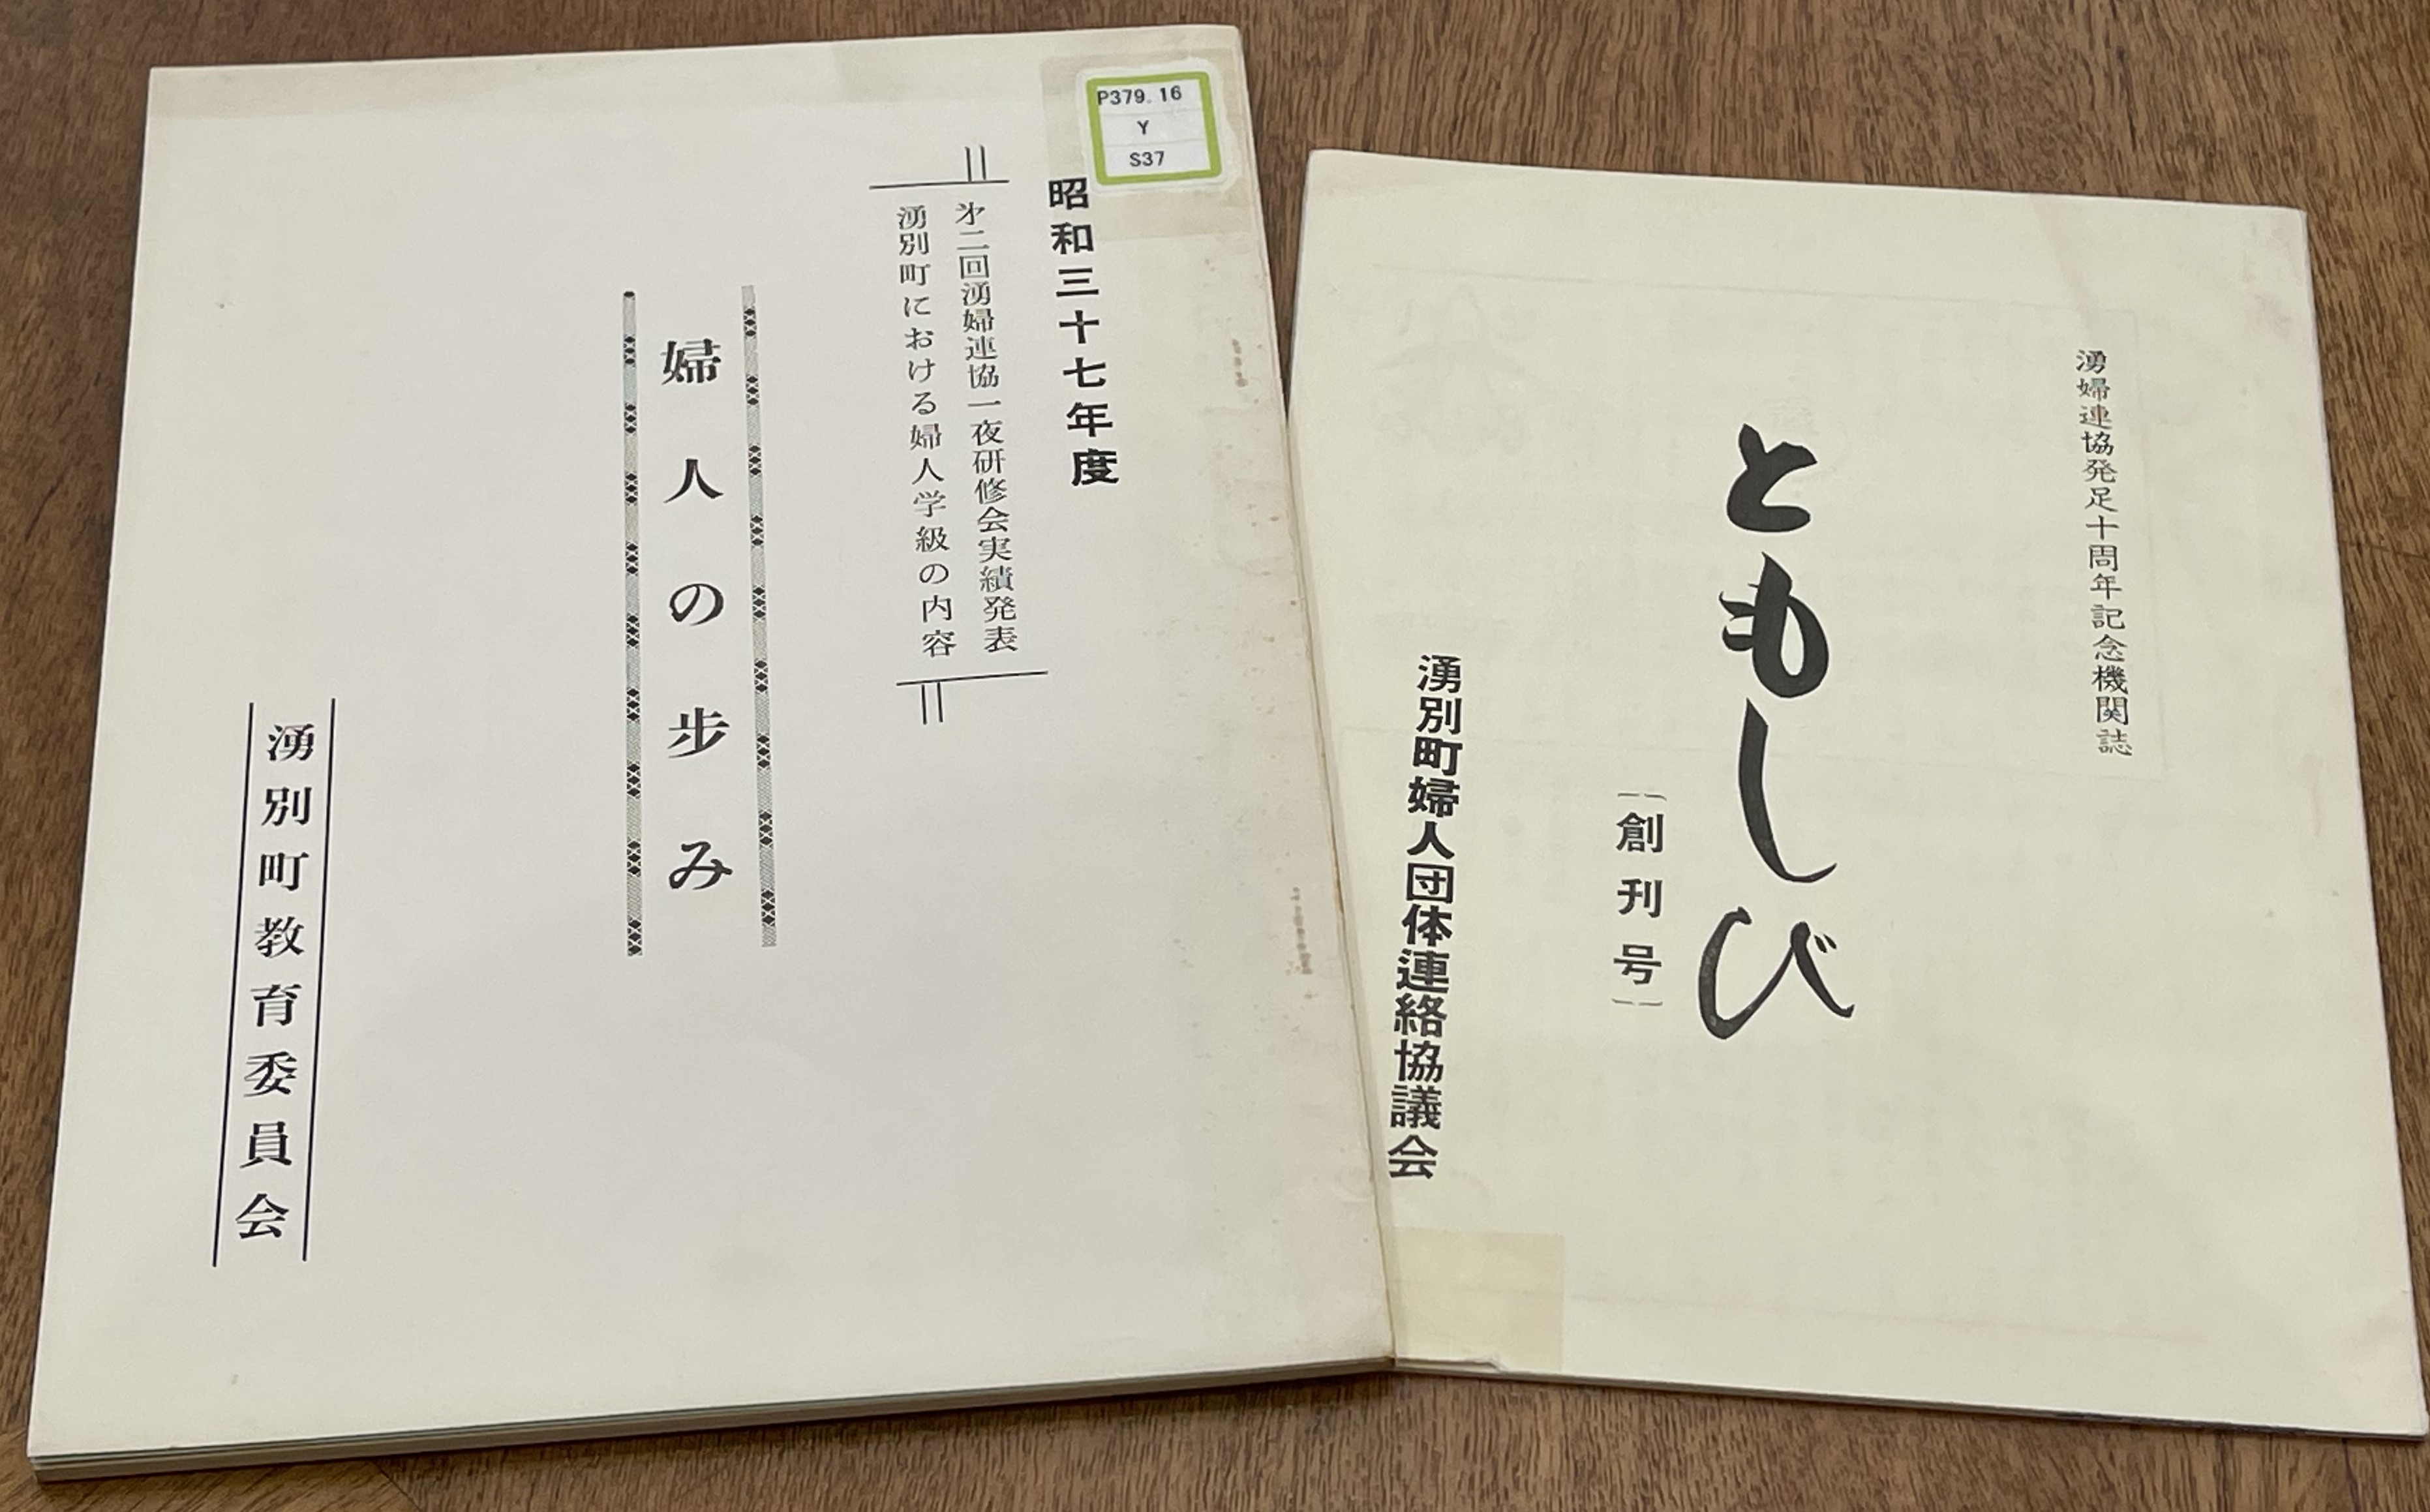 P379.16
Y
S37
昭和三十七年度
㐧二回湧婦連協一夜研修会実績発表
湧別町における婦人学級の内容
婦人の歩み
湧別町教育委員会
湧婦連協発足十周年記念機関誌
ともしび
(創刊号)
湧別町婦人団体連絡協議会